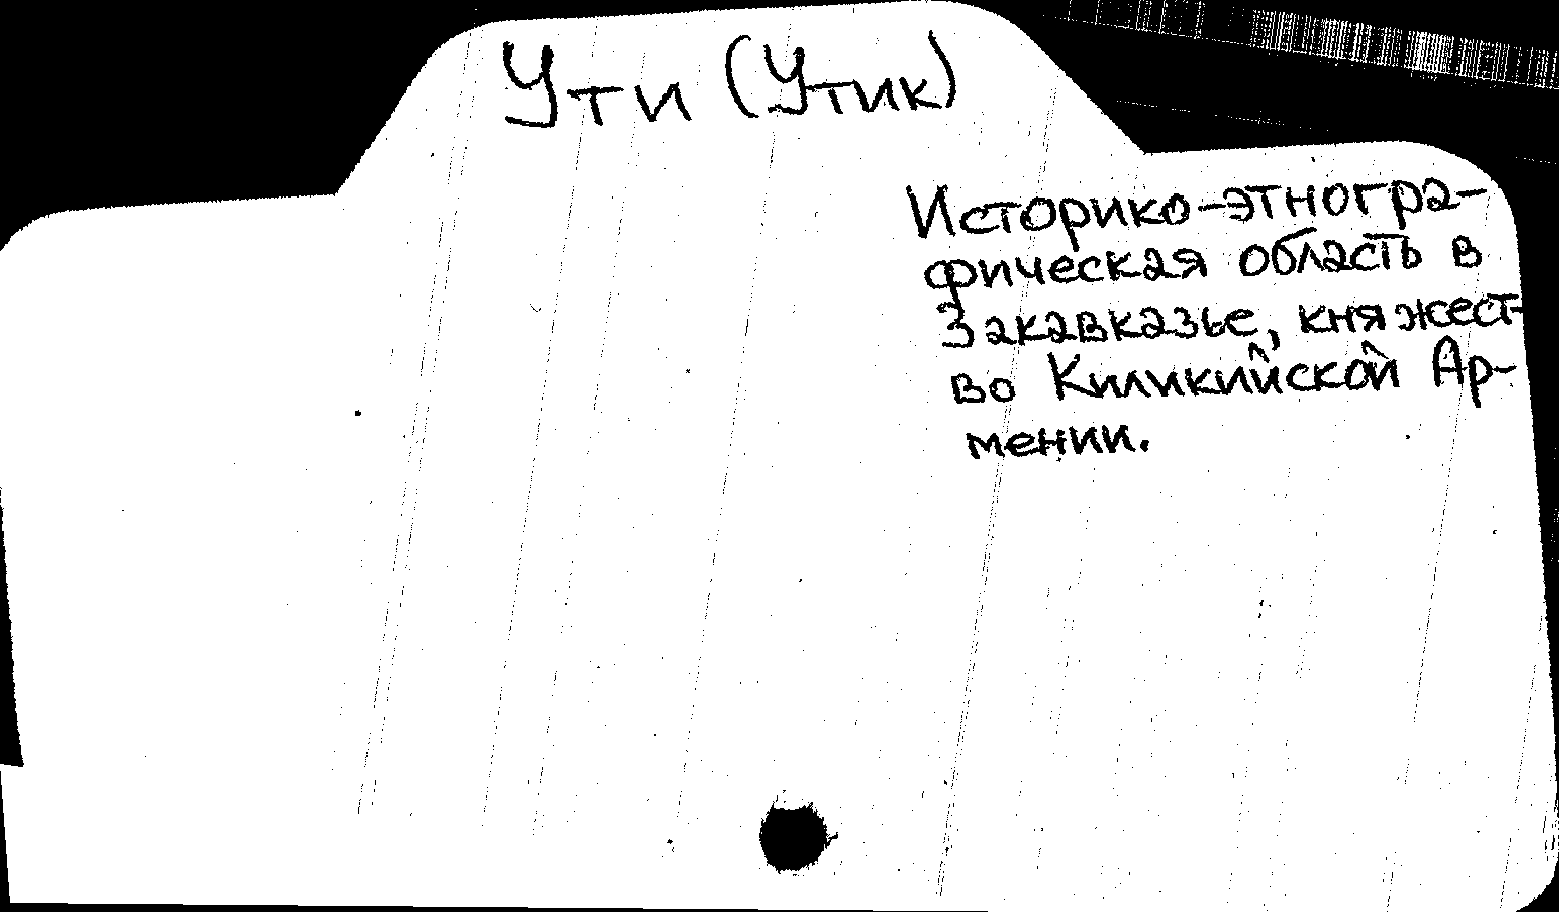 Ути (Утик)
Историко-этногра-
фическая область в
Закавказье, княжест-
во Киликийской Ар-
мении.